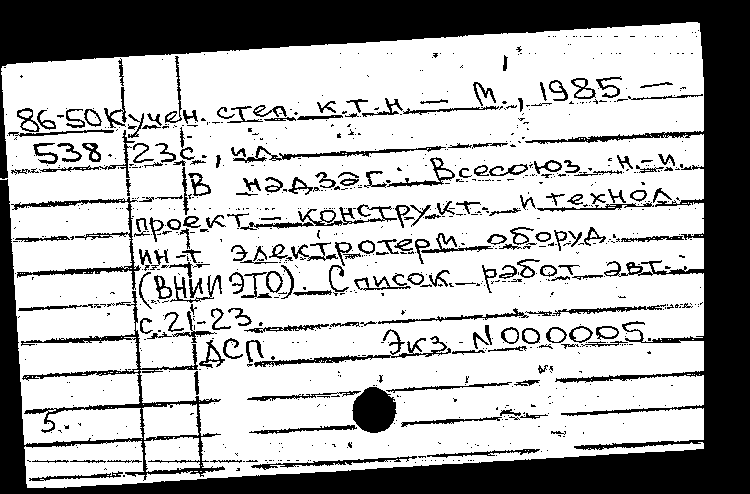 86-50К учен. степ. к.т.н. — М., 1985 —
538. 23с., ил.
В надзаг.: Всесоюз. н.-и.
проект.-конструкт. и технол.
ин-т электротерм. оборуд.
(ВНИИЭТО). Список работ авт.:
с. 21-23.
ДСП. Экз. N000005.
5.